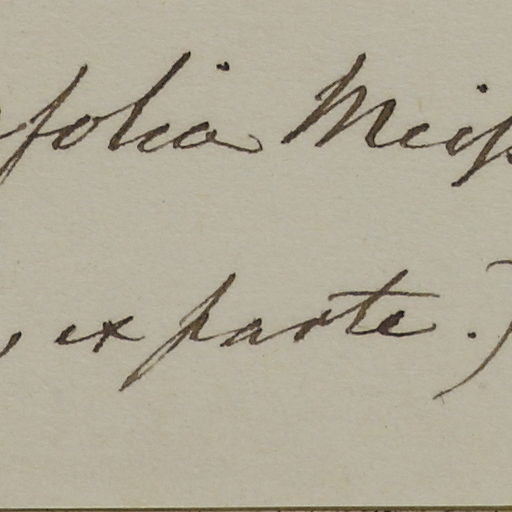 folia Meiſs
, ex parte.)